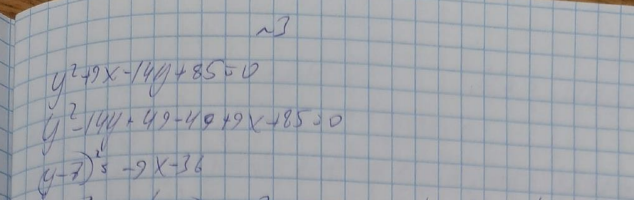 ~3
y²+9x-14y+85=0
y²-14y+49-49+9x+85=0
(y-7)²=-9x-36